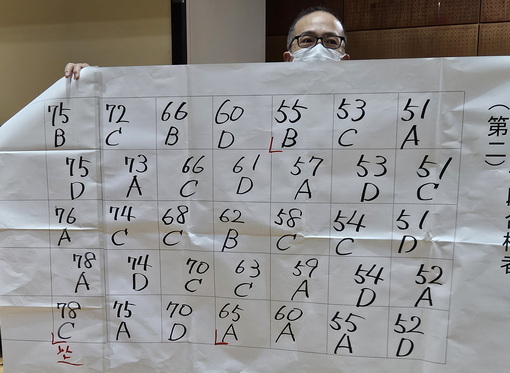 （第二）
合格者
75 72 66 60 55 53 51
B C B D B C A
75 73 66 61 57 53 51
D A C D A D C
76 74 68 62 58 54 51
A C C B C C D
78 74 70 63 59 54 52
A D C C A D A
78 75 70 65 60 55 52
C A D A A A D